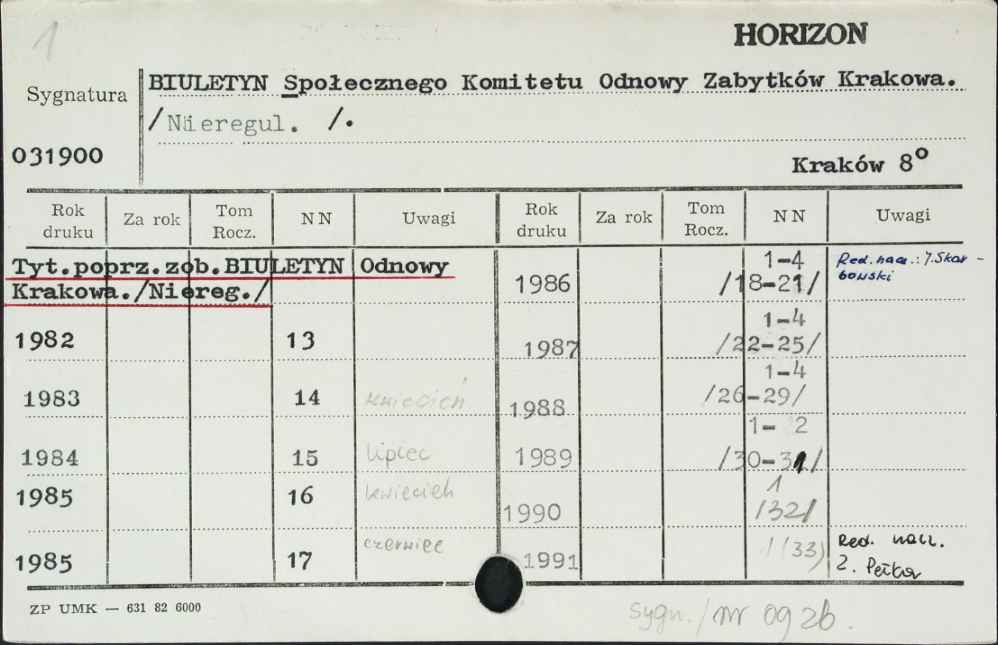 1
HORIZON
Sygnatura
031900
BIULETYN Społecznego Komitetu Odnowy Zabytków Krakowa.
/Nieregul. /.
Kraków 8º
Rok druku Za rok Tom Rocz. NN Uwagi Rok druku Za rok Tom Rocz. NN Uwagi
Tyt.poprz.zob.BIULETYN Odnowy
Krakowa./Niereg./
1986 1-4 /18-21/ Red. nacz.: J. Skar-
bowski
1982 13
1987 1-4 /22-25/
1983 14 kwiecień
1988 1-4 /26-29/
1984 15 lipiec
1989 1- 2 /30-31/
1985 16 kwiecień
1990 1 /32/
1985 17 czerwiec
1991 1 (33) Red. nacz.
Z. Pełka
ZP UMK — 631 82 6000
sygn./nr 092b.